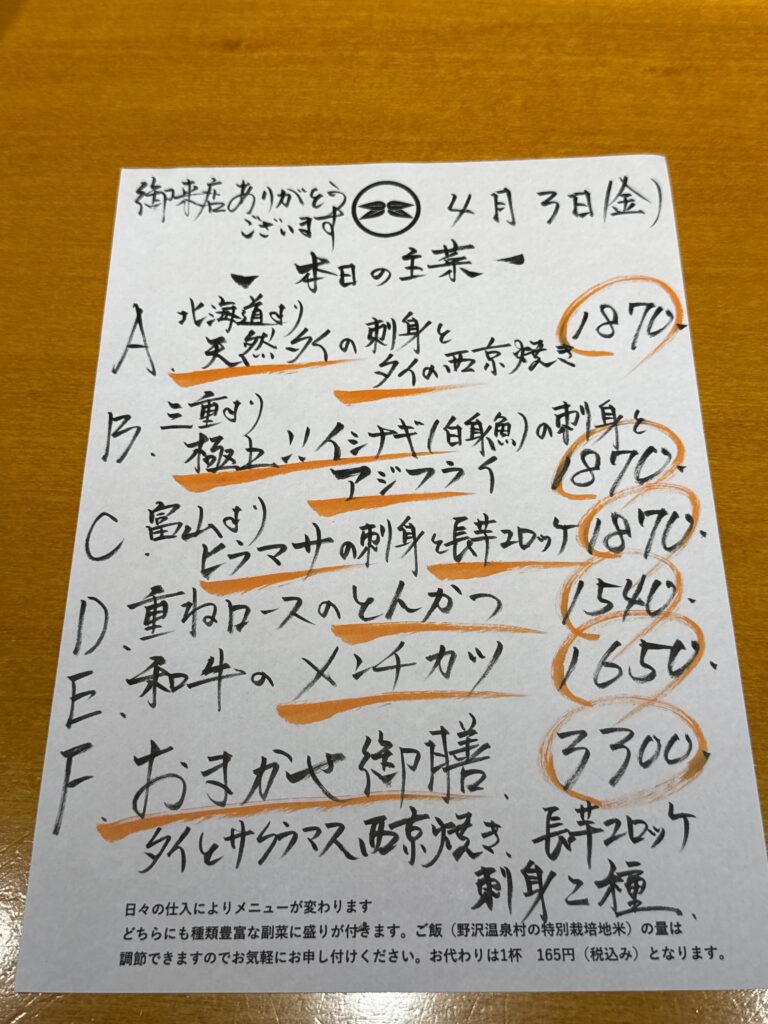 御来店ありがとう
ございます
4月3日(金)
本日の主菜
A. 北海道より
天然タイの刺身と
タイの西京焼き 1870.
B. 三重より
極上!!イシナギ(白身魚)の刺身と
アジフライ 1870.
C. 富山より
ヒラマサの刺身と長芋コロッケ 1870.
D. 重ねロースのとんかつ 1540.
E. 和牛のメンチカツ 1650.
F. おまかせ御膳. 3300.
タイとサクラマス西京焼き、長芋コロッケ
刺身二種、
日々の仕入によりメニューが変わります
どちらにも種類豊富な副菜に盛りが付きます。ご飯(野沢温泉村の特別栽培地米)の量は
調節できますのでお気軽にお申し付けください。お代わりは1杯 165円(税込み)となります。